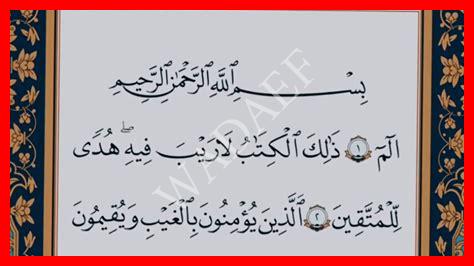 بِسْمِ ٱللَّهِ ٱلرَّحْمَٰنِ ٱلرَّحِيمِ
الٓمٓ ١ ذَٰلِكَ ٱلْكِتَٰبُ لَا رَيْبَ فِيهِ ۖ هُدًى
لِّلْمُتَّقِينَ ٢ ٱلَّذِينَ يُؤْمِنُونَ بِٱلْغَيْبِ وَيُقِيمُونَ
WADAEF